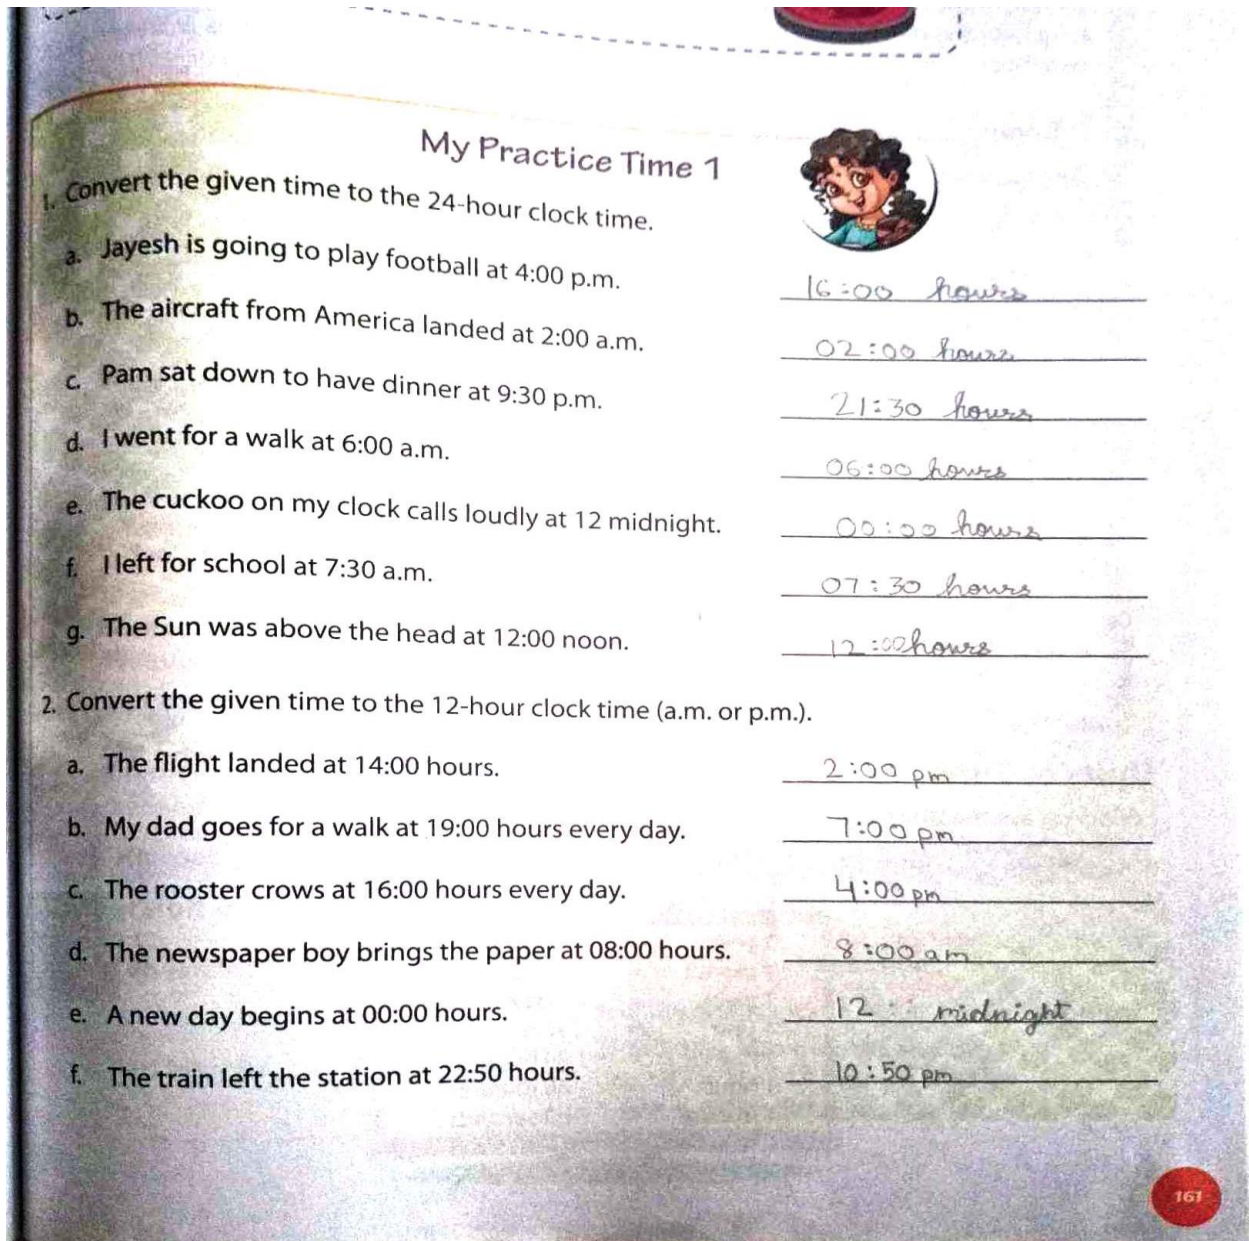 My Practice Time 1
1. Convert the given time to the 24-hour clock time.
a. Jayesh is going to play football at 4:00 p.m. 16:00 hours
b. The aircraft from America landed at 2:00 a.m. 02:00 hours
c. Pam sat down to have dinner at 9:30 p.m. 21:30 hours
d. I went for a walk at 6:00 a.m. 06:00 hours
e. The cuckoo on my clock calls loudly at 12 midnight. 00:00 hours
f. I left for school at 7:30 a.m. 07:30 hours
g. The Sun was above the head at 12:00 noon. 12:00 hours
2. Convert the given time to the 12-hour clock time (a.m. or p.m.).
a. The flight landed at 14:00 hours. 2:00 pm
b. My dad goes for a walk at 19:00 hours every day. 7:00 pm
c. The rooster crows at 16:00 hours every day. 4:00 pm
d. The newspaper boy brings the paper at 08:00 hours. 8:00 am
e. A new day begins at 00:00 hours. 12 midnight
f. The train left the station at 22:50 hours. 10:50 pm
161